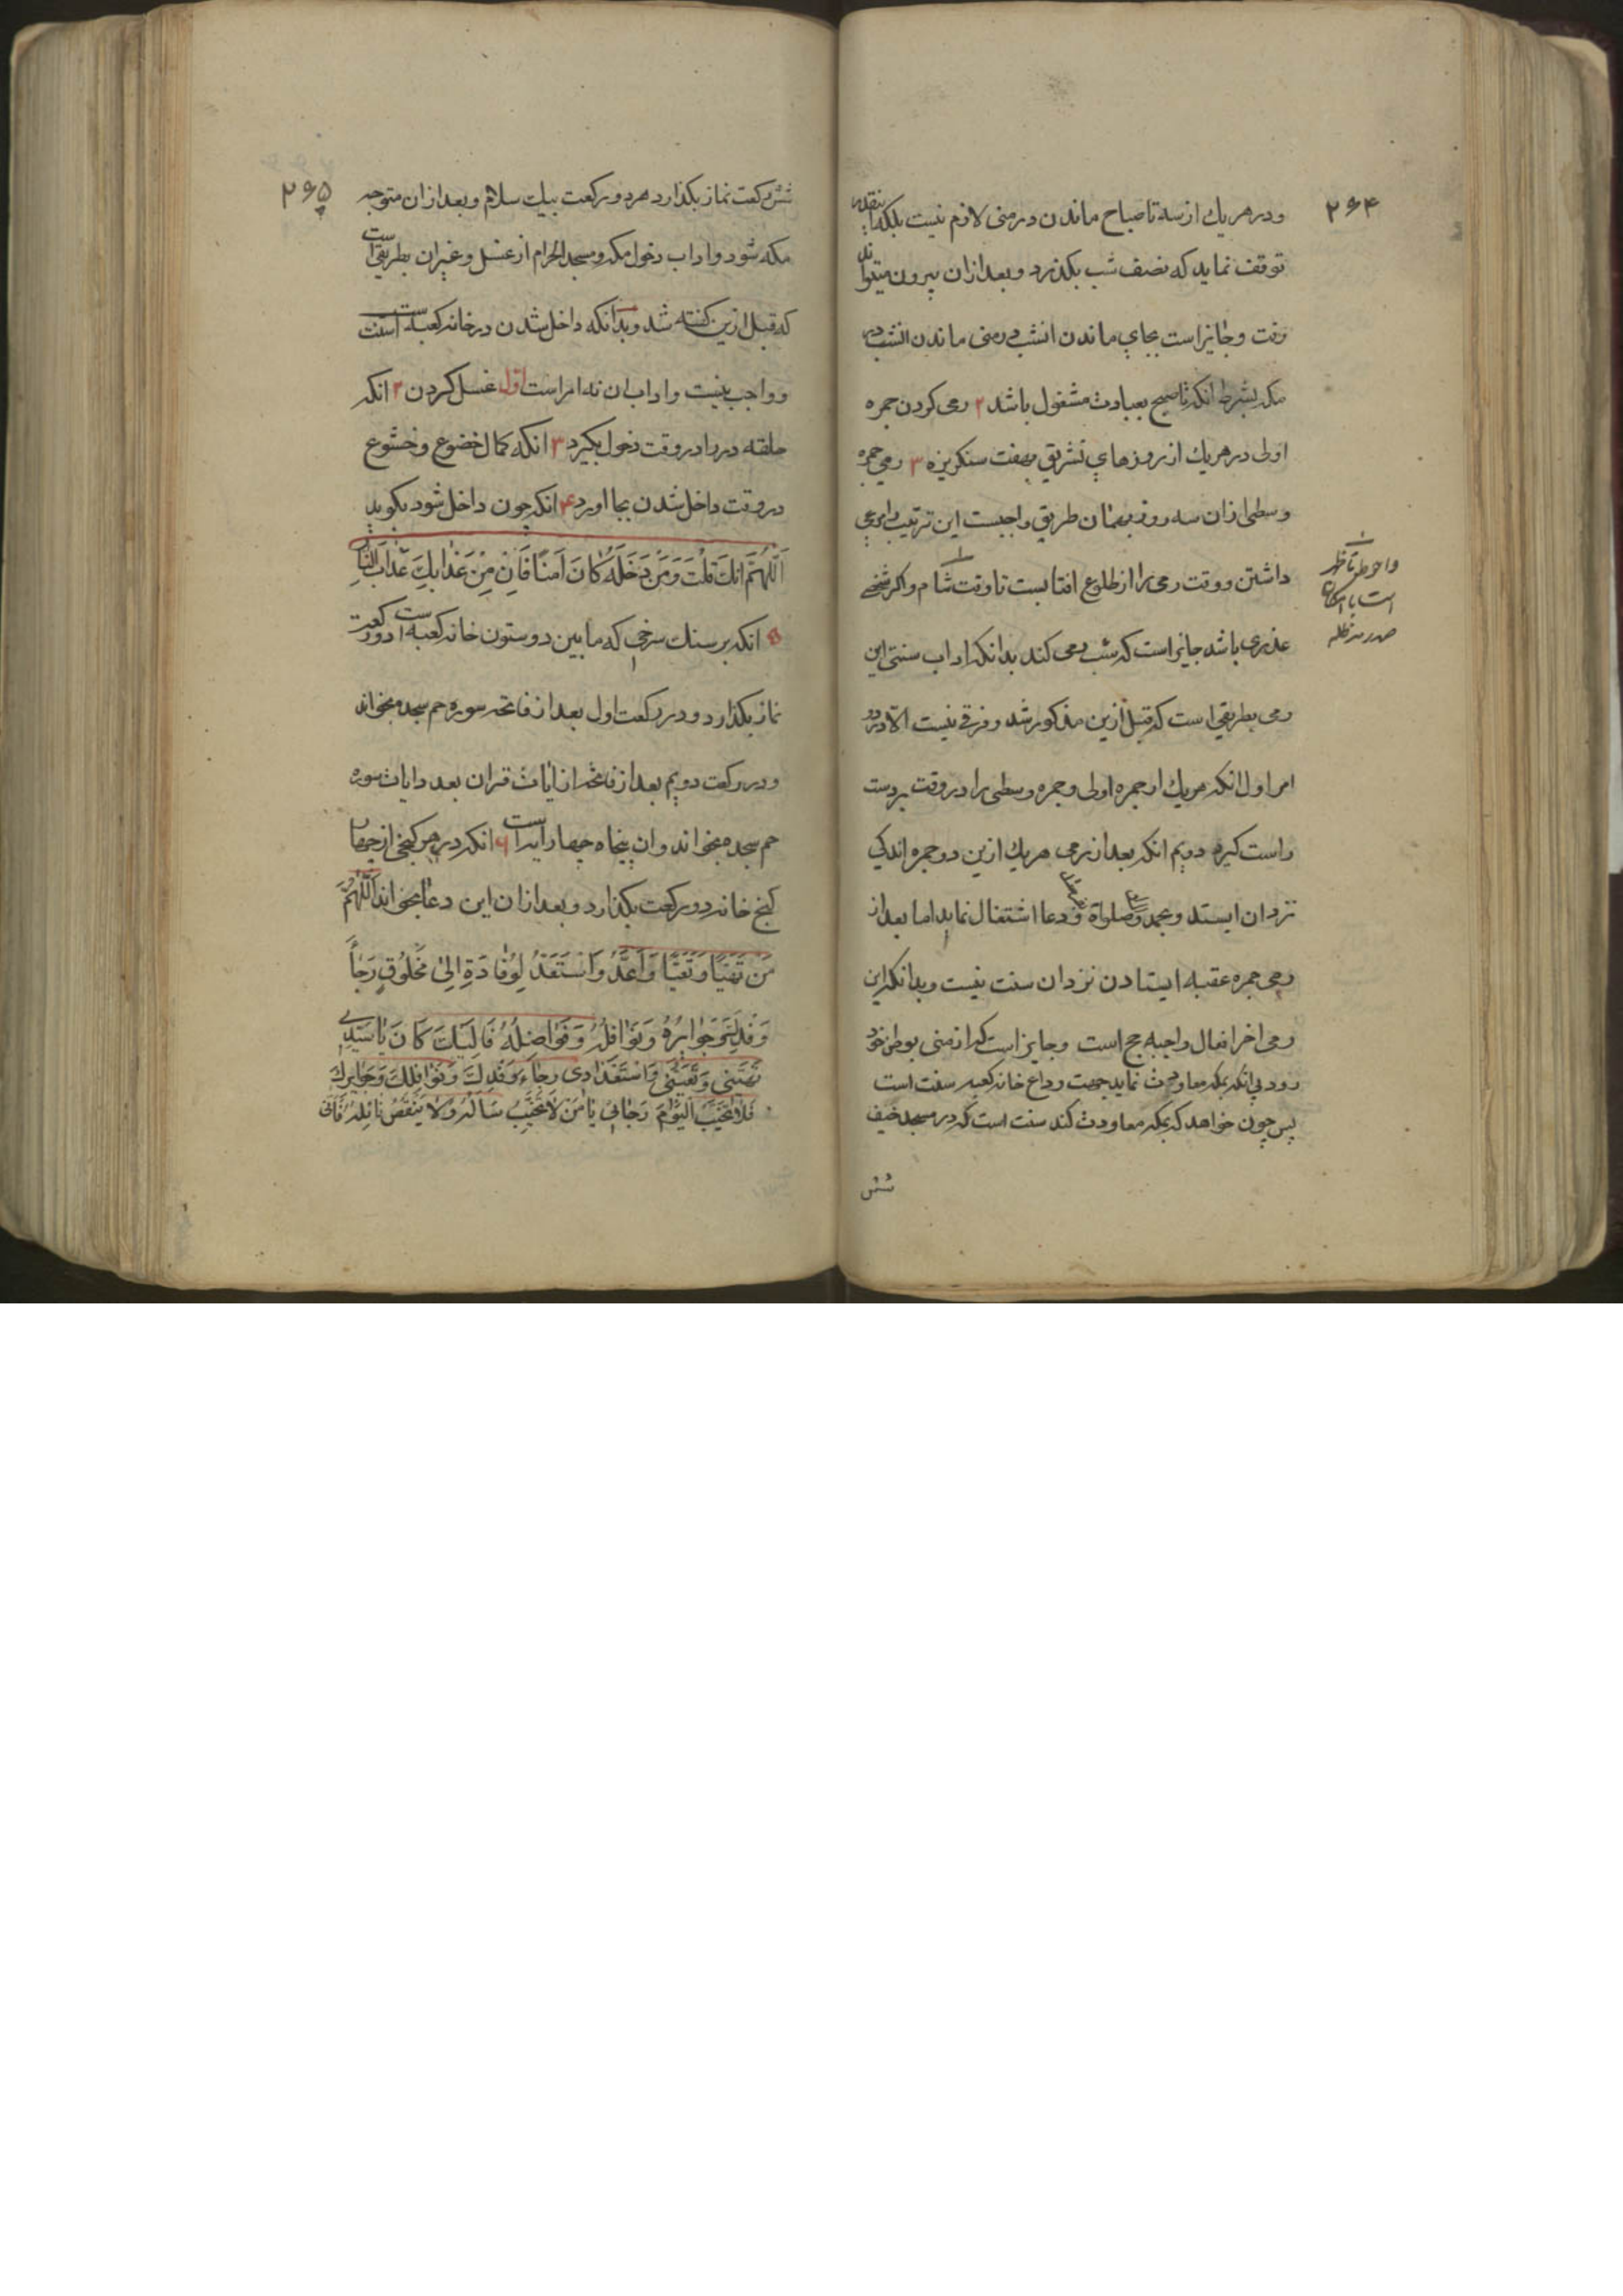 ۲۶۴
و در هر یك از سه تا صباح ماندن در منی لازم نیست بلکه اینقدر
توقف نماید که نصف شب بکذرد و بعد از ان بیرون میتواند
رفت و جایز است بجای ماندن انشب در منی ماندن انشب در
مکه بشرط انکه تا صبح بعبادت مشغول باشد ۲ رمی کردن جمره
اولی در هر یك از روزهای تشریق بهفت سنکریزه ۳ رمی جمره
وسطی از ان سه روز بهمان طریق واجبست این ترتیب را مرعی
داشتن و وقت رمی را از طلوع افتابست تا وقت شام و اکر شخصی
عذری باشد جایز است که شب رمی کند بدانکه اداب سنتی این
رمی بطریقی است که قبل ازین مذکور شد و فرقی نیست الا در دو
امر اول انکه هر یك از جمره اولی و جمره وسطی را در وقت بردست
راست کیرد دویم انکه بعد از رمی هر یك ازین دو جمره اندکی
نزد ان ایستد و بحمد و صلواة و دعا اشتغال نماید اما بعد از
رمی جمره عقبه ایستادن نزد ان سنت نیست و بدانکه این
رمی اخر افعال واجبه حج است و جایز است که از منی بوطن خود
رود پی انکه بمکه معاودت نماید جهت وداع خانه کعبه سنت است
پس چون خواهد که بمکه معاودت کند سنت است که در مسجد خیف
شش
واحوط تا ظهر
است با امکان
صدر مدظله
۲۶۵
شش رکعت نماز بکذارد هر دو رکعت بیك سلام و بعد از ان متوجه
مکه شود و اداب دخول مکه و مسجد الحرام از غسل و غیر ان بطریقی است
که قبل ازین کفته شد و بدانکه داخل شدن در خانه کعبه سنت است
و واجب نیست و اداب ان نه امر است اول غسل کردن ۲ انکه
حلقه در را در وقت دخول بکیرد ۳ انکه کمال خضوع و خشوع
در وقت داخل شدن بجا اورد ۴ انکه چون داخل شود بکوید
اَللّهُمَّ اِنَّكَ قُلْتَ وَمَنْ دَخَلَهُ كَانَ اٰمِنًا فَاٰمِنّي مِنْ عَذَابِكَ عَذَابَ النَّارِ
۵ انکه بر سنك سرخی که ما بین دو ستون خانه کعبه است دو رکعت
نماز بکذارد و در رکعت اول بعد از فاتحه سوره حم سجده بخواند
و در رکعت دویم بعد از فاتحه از ایات قران بعدد ایات سوره
حم سجده بخواند و ان پنجاه چهار ایه است ۶ انکه در هر کنجی از چهار
کنج خانه دو رکعت بکذارد و بعد از ان این دعا بخواند اَللّهُمَّ
مَنْ تَهَيَّأَ وَتَعَبَّأَ وَاَعَدَّ وَاسْتَعَدَّ لِوِفَادَةٍ اِلىٰ مَخْلُوقٍ رَجَاءَ
رِفْدِهِ وَجَوَايِزِهِ وَنَوَافِلِهِ وَفَوَاضِلِهِ فَاِلَيْكَ كَانَ يَا سَيِّدِي
تَهْيِئَتِي وَتَعْبِئَتِي وَاسْتِعْدَادِي رَجَاءَ رِفْدِكَ وَنَوَافِلِكَ وَجَوَايِزِكَ
فَلَا تُخَيِّبِ الْيَوْمَ رَجَائِي يَا مَنْ لَا يَخِيبُ سَائِلُهُ وَلَا يَنْقُصُ نَائِلُهُ فَاِنّي